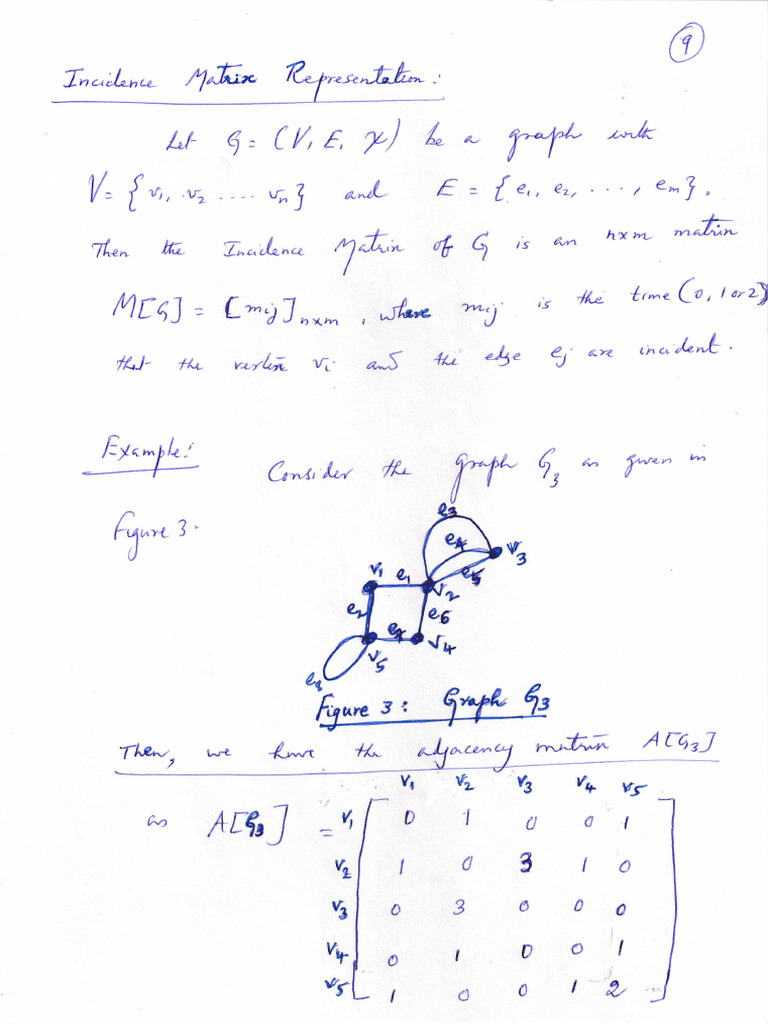 9
Incidence Matrix Representation:
Let G = (V, E, γ) be a graph with
V = { v1, v2 .... vn} and E = { e1, e2, ..., em}.
Then the Incidence Matrix of G is an n×m matrix
M[G] = [mij]n×m, where mij is the time (0, 1 or 2)
that the vertex vi and the edge ej are incident.
Example: Consider the graph G3 as given in
Figure 3.
e3
e4 v3
v1 e1 v2 e5
e2 e6
e7 v4
v5
e8
Figure 3: Graph G3
Then, we have the adjacency matrix A[G3]
v1 v2 v3 v4 v5
as A[G3] = v1 0 1 0 0 1
v2 1 0 3 1 0
v3 0 3 0 0 0
v4 0 1 0 0 1
v5 1 0 0 1 2